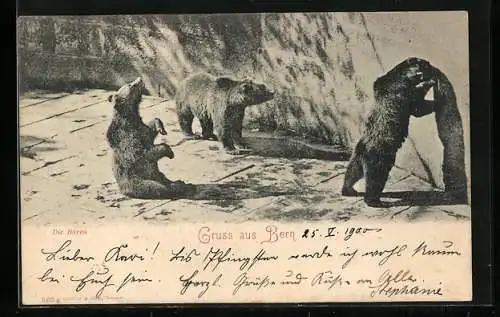 Die Bären
Gruss aus Bern 25. V. 1900
Lieber Kari! bis Pfingsten werde ich wohl kaum
bei Euch sein. Herzl. Grüsse und Küsse an Alle
Stephanie